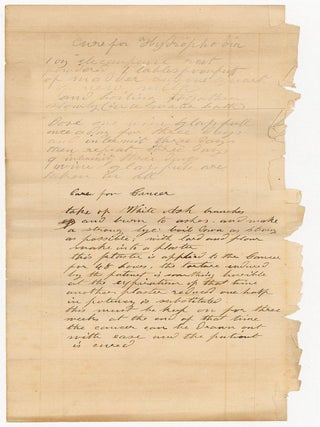 Cure for Hydrophobia
1 oz elecampane root
powdered 4 tablespoonfuls
of madder and one quart
new milk
and boiling together
slowly
Dose one wine glass full
once a day for three days
and intermit three days
then repeat three days
& intermit three days
wine glass full are
taken in all
Cure for Cancer
take of White Ash branches
and burn to ashes and make
a strong lye boil down as strong
as possible, with lard and flour
make into a plaster
this plaster is applied to the Cancer
for 48 hours, the torture endured
by the patient is something horrible
at the expiration of that time
another plaster reduced one half
in potency is substituted
this must be kept on for three
weeks at the end of that time
the cancer can be Drawn out
with ease and the patient
is cured